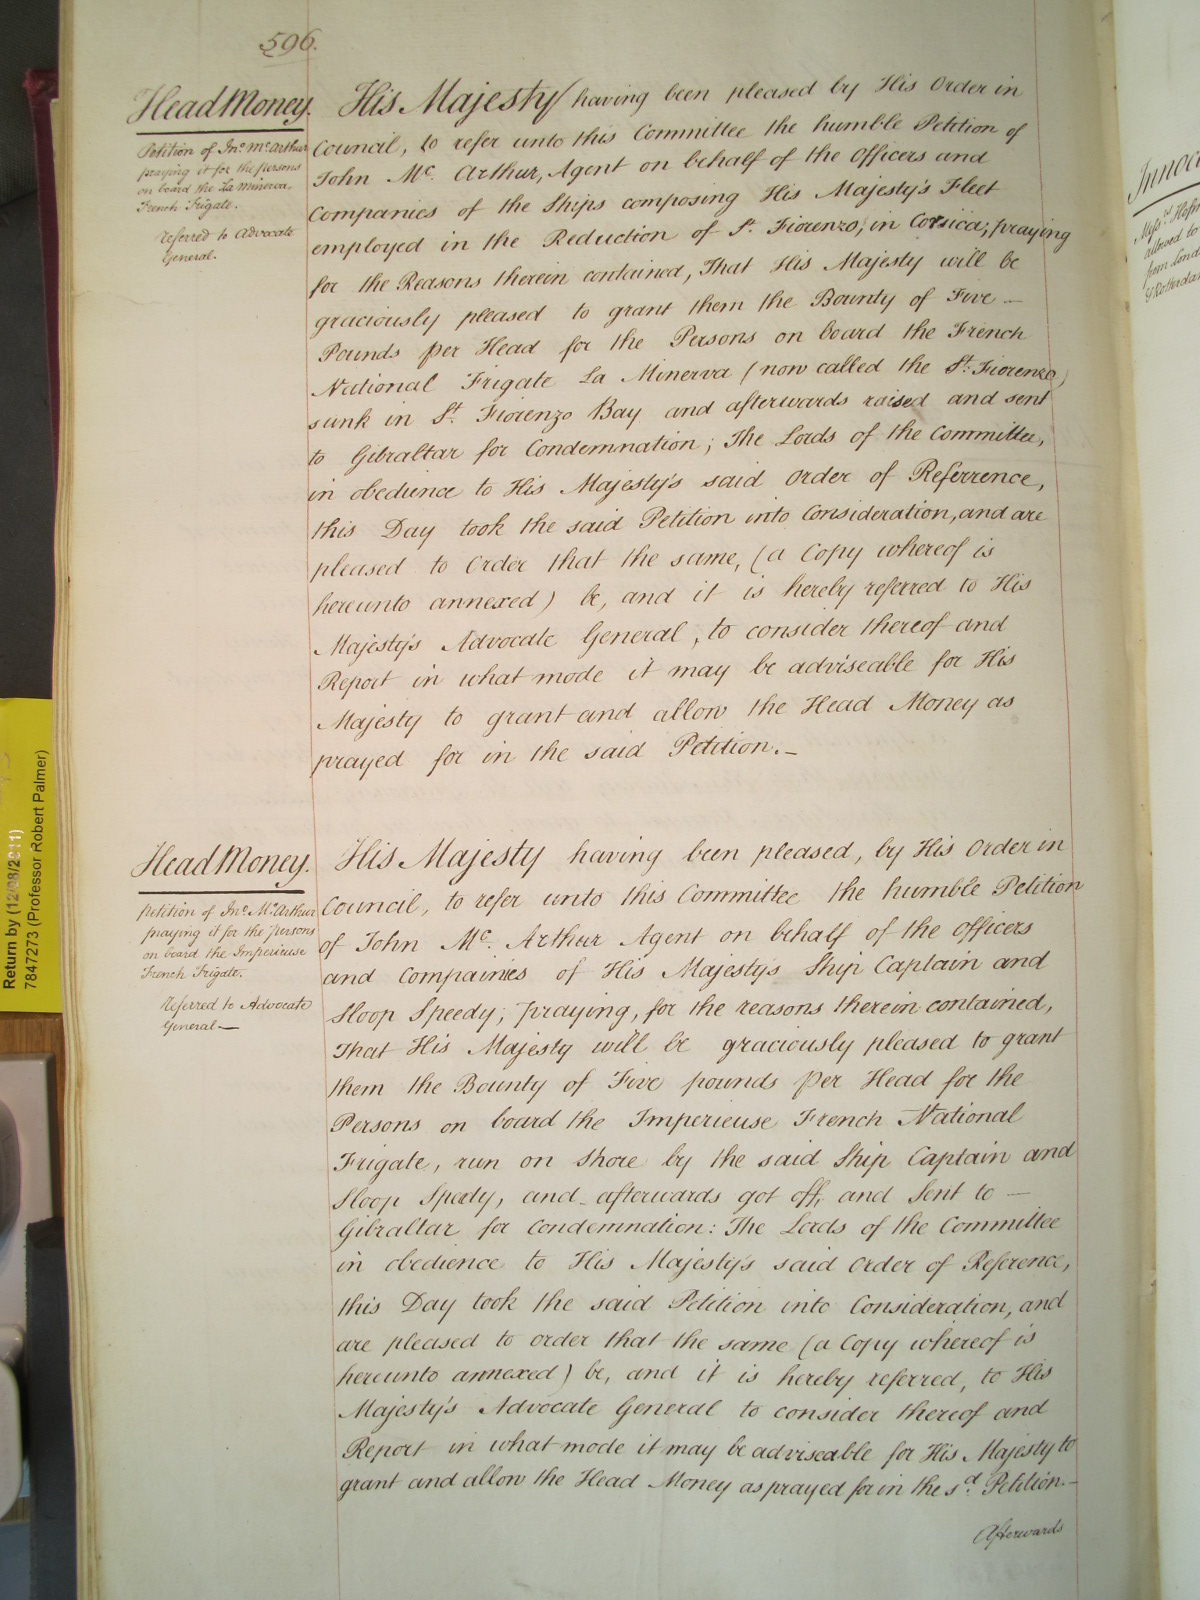 596.
Head Money.
Petition of Jno. McArthur
praying it for the persons
on board the La Minerva,
French Frigate.
referred to Advocate
General.
His Majesty having been pleased by His Order in
Council, to refer unto this Committee the humble Petition of
John Mc. Arthur, Agent on behalf of the Officers and
Companies of the Ships composing His Majesty's Fleet
employed in the Reduction of St. Fiorenzo, in Corsica; praying
for the Reasons therein contained, That His Majesty will be
graciously pleased to grant them the Bounty of Five —
Pounds per Head for the Persons on board the French
National Frigate La Minerva (now called the St. Fiorenzo)
sunk in St. Fiorenzo Bay and afterwards raised and sent
to Gibraltar for Condemnation; The Lords of the Committee,
in obedience to His Majesty's said Order of Referrence,
this Day took the said Petition into Consideration, and are
pleased to Order that the same, (a Copy whereof is
hereunto annexed) be, and it is hereby referred to His
Majesty's Advocate General, to consider thereof and
Report in what mode it may be adviseable for His
Majesty to grant and allow the Head Money as
prayed for in the said Petition. —
Head Money.
Petition of Jno. Mc.Arthur
praying it for the persons
on board the Imperieuse
French Frigate.
Referred to Advocate
General —
His Majesty having been pleased, by His Order in
Council, to refer unto this Committee the humble Petition
of John Mc. Arthur Agent on behalf of the Officers
and Compainies of His Majesty's Ship Captain and
Sloop Speedy; praying, for the reasons therein contained,
That His Majesty will be graciously pleased to grant
them the Bounty of Five pounds per Head for the
Persons on board the Imperieuse French National
Frigate, run on shore by the said Ship Captain and
Sloop Speedy, and afterwards got off, and Sent to —
Gibraltar for Condemnation: The Lords of the Committee
in obedience to His Majesty's said Order of Reference,
this Day took the said Petition into Consideration, and
are pleased to order that the same (a Copy whereof is
hereunto annexed) be, and it is hereby referred, to His
Majesty's Advocate General to consider thereof and
Report in what mode it may be adviseable for His Majesty to
grant and allow the Head Money as prayed for in the sd. Petition. —
Afterwards
Return by (12/08/2011)
7847273 (Professor Robert Palmer)